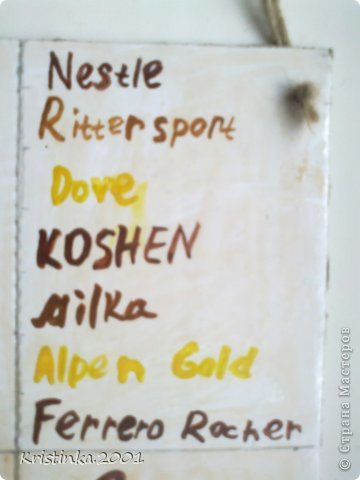 Nestle
Ritter sport
Dove
KOSHEN
Milka
Alpen Gold
Ferrero Rocher
Kristinka 2001
© Страна Мастеров